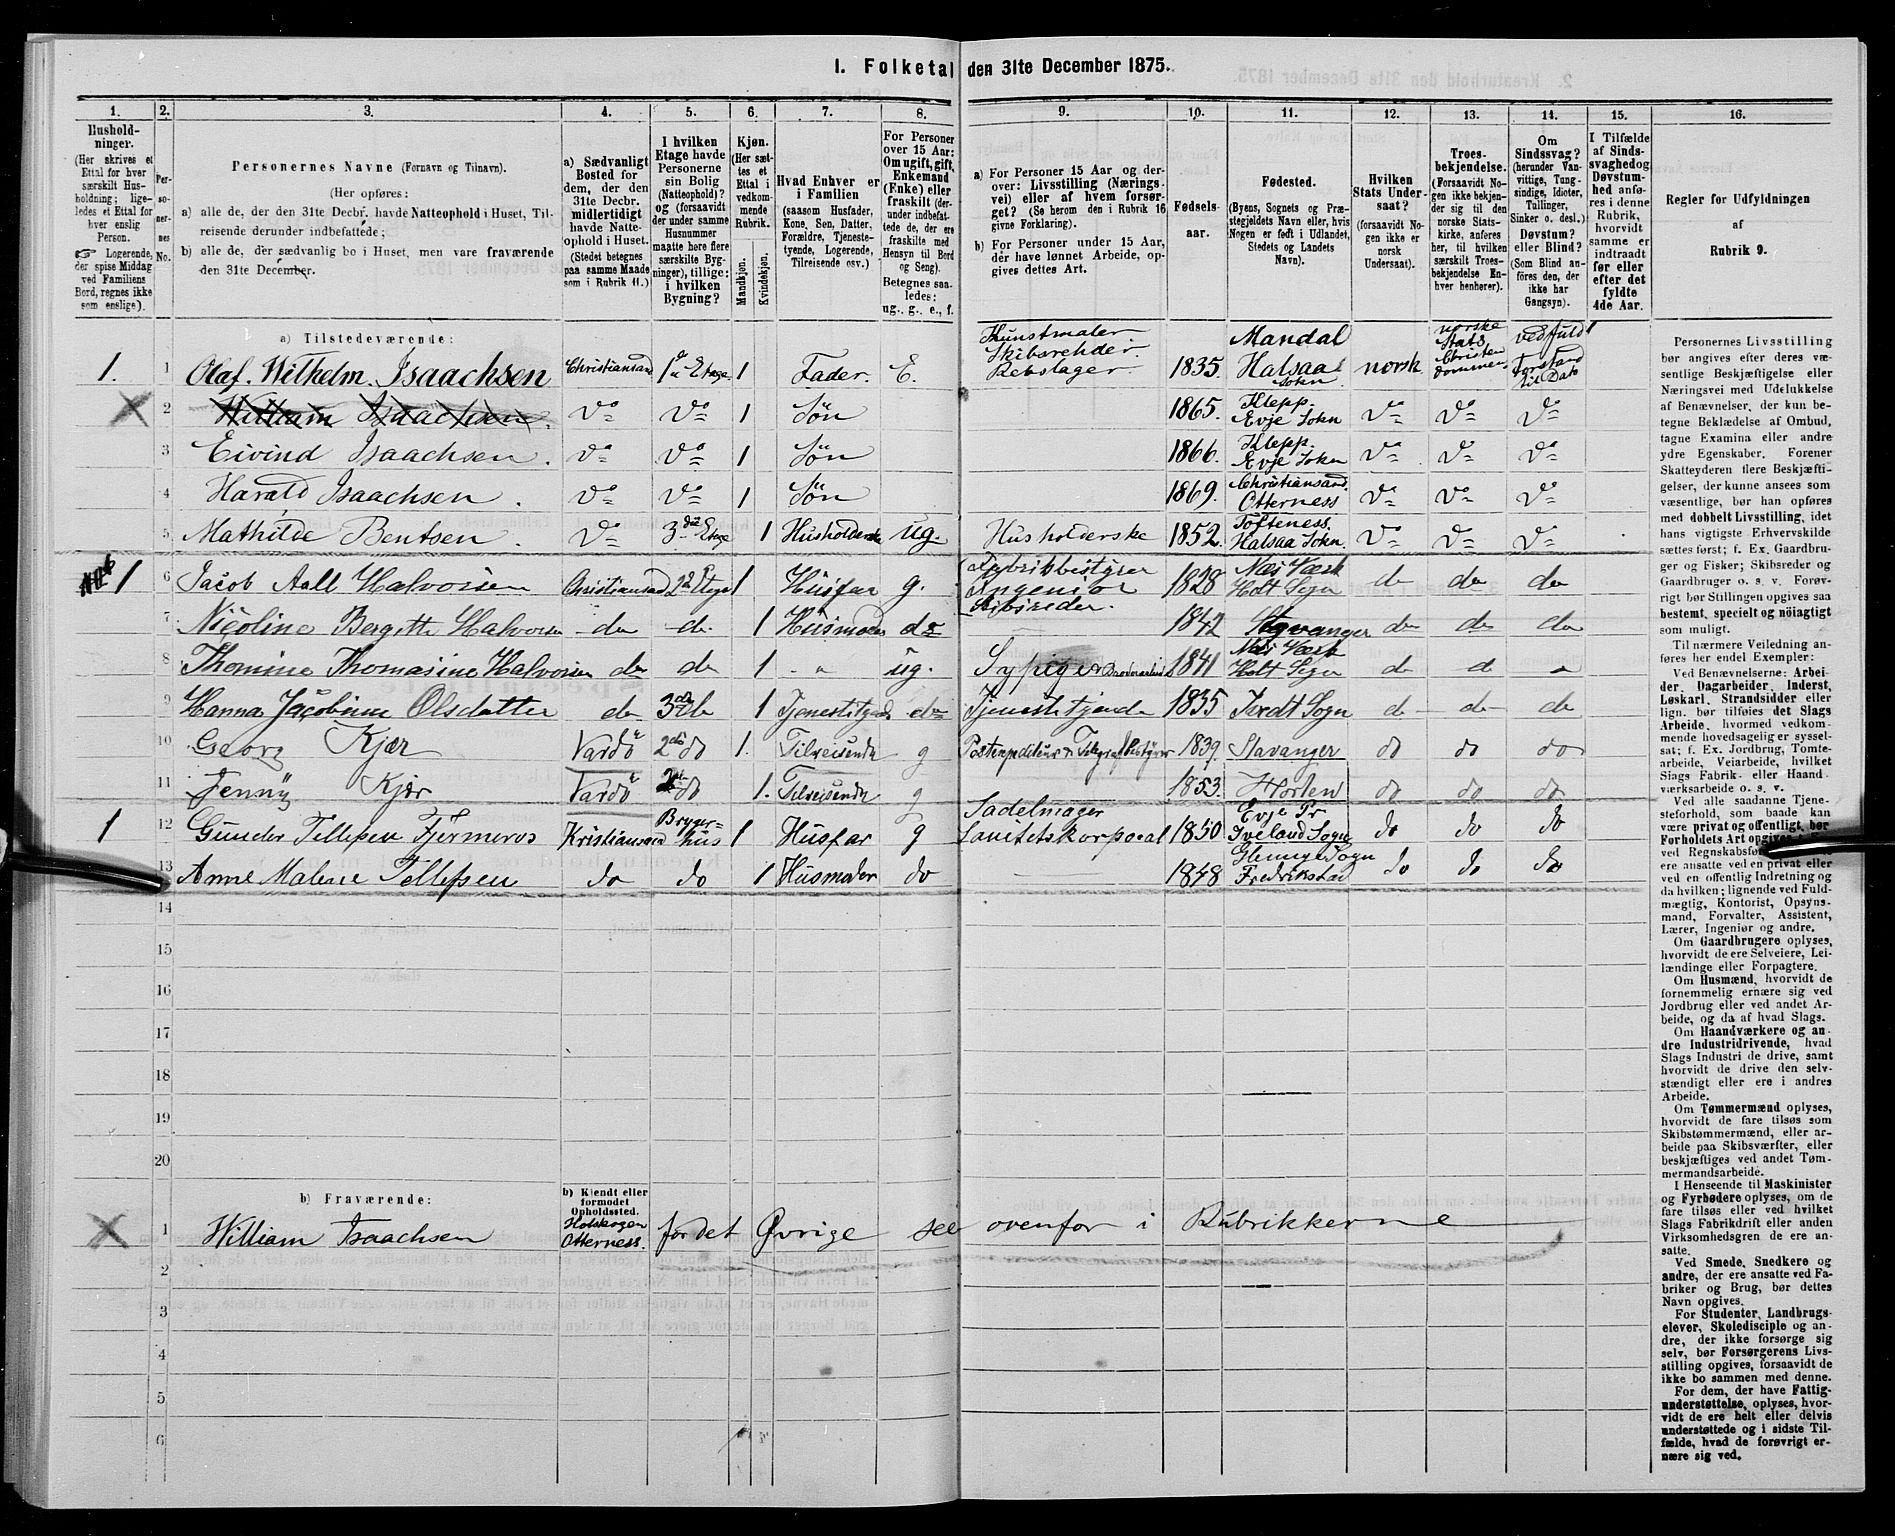 1. Folketal den 31te December 1875.
1. 2. 3. 4. 5. 6. 7. 8. 9. 10. 11. 12. 13. 14. 15. 16.
Hushold-
ninger.
(Her skrives et
Ettal for hver
særskilt Hus-
holdning; lige-
ledes et Ettal for
hver enslig
Person.
☞ Logerende,
der spise Middag
ved Familiens
Bord, regnes ikke
som enslige).
Per-
so-
ner-
nes
No.
Personernes Navne (Fornavn og Tilnavn).
(Her opføres:
a) alle de, der den 31te Decbr. havde Natteophold i Huset, Til-
reisende derunder indbefattede;
b) alle de, der sædvanlig bo i Huset, men vare fraværende
den 31te December.
a) Sædvanligt
Bosted for
dem, der den
31te Decbr.
midlertidigt
havde Natte-
ophold i Huset.
(Stedet betegnes
paa samme Maade
som i Rubrik 11.)
I hvilken
Etage havde
Personerne
sin Bolig
(Natteophold)?
og (forsaavidt
der under samme
Husnummer
maatte høre flere
særskilte Byg-
ninger), tillige:
i hvilken
Bygning?
Kjøn.
(Her sæt-
tes et
Ettal i
vedkom-
mende
Rubrik.
Mandkjøn.
Kvindekjøn.
Hvad Enhver er
i Familien
(saasom Husfader,
Kone, Søn, Datter,
Forældre, Tjeneste-
tyende, Logerende,
Tilreisende osv.)
For Personer
over 15 Aar:
Om ugift, gift,
Enkemand
(Enke) eller
fraskilt (der-
under indbefat-
tede de, der ere
fraskilte med
Hensyn til Bord
og Seng).
Betegnes saa-
ledes:
ug., g., e., f.
a) For Personer 15 Aar og der-
over: Livsstilling (Nærings-
vei) eller af hvem forsør-
get? (Se herom den i Rubrik 16
givne Forklaring).
b) For Personer under 15 Aar,
der have lønnet Arbeide, op-
gives dettes Art.
Fødsels-
aar.
Fødested.
(Byens, Sognets og Præ-
stegjeldets Navn eller, hvis
Nogen er født i Udlandet,
Stedets og Landets
Navn).
Hvilken
Stats Under-
saat?
(forsaavidt No-
gen ikke er
norsk
Undersaat).
Troes-
bekjendelse.
(Forsaavidt No-
gen ikke bekjen-
der sig til den
norske Stats-
kirke, anføres
her, til hvilken
særskilt Troes-
bekjendelse En-
hver henhører).
Om
Sindssvag?
(herunder Van-
vittige, Tung-
sindige, Idioter,
Tullinger,
Sinker o. desl.)
Døvstum?
eller Blind?
(Som Blind an-
føres den, der
ikke har
Gangsyn).
I Tilfælde
af Sinds-
svaghed og
Døvstum-
hed anfø-
res i denne
Rubrik,
hvorvidt
samme er
indtraadt
før eller
efter det
fyldte
4de Aar.
Regler for Udfyldningen
af
Rubrik 9.
a) Tilstedeværende:
1. 1 Olaf. Wilhelm. Isaachsen Christiansand 1ste Etage 1 Fader. E. Kunstmaler Skibsrehder. Rebslager. 1835. Mandal Halsaa Sokn norsk norske Stats Christendommen ved fuld Forstand til Dato
2 William Isaachsen. Do Do 1 Søn 1865. Klepp. Evje Sokn Do Do Do
3 Eivind Isaachsen. Do Do 1 Søn 1866. Klepp. Evje Sokn Do Do Do
4 Harald Isaachsen. Do Do 1 Søn 1869. Christiansand. Otterness Do Do Do
5 Mathilde Bentsen. Do 3die Etage 1 Husholderske ug. Husholderske 1852. Tofteness. Halsaa Sokn. Do Do Do
1 6 Jacob Aall Halvorsen Christiansand 2 Etage 1 Husfar g. Fabrikbestyrer Ingeniør Skibsreder. 1828 Næs Værk Holt Sogn de de de
7 Nicoline Bergitte Halvorsen de de. 1 Husmoder do 1842 Stavanger de de de
8 Thomine Thomasine Halvorsen de de 1 - " ug. Sypige 1841 Næs Værk Holt Sogn de d "
9 Hanna Jacobine Olsdatter de 3die 1 Tjenestetyende do Tjenestetjende 1835 Sogn de de de
10 Georg Kjær Vardö 2den do 1. Tilreisende g Postexpeditør & Telegrafbestyrer 1839. Stavanger do do do
11 Jenny Kjær Vardö do 1. Tilreisende g 1853. Horten do do do
1 12 Gunder Tellefsen Fjermeros Kristianssand Bryger-hus 1 Husfar g Sadelmager Sanitetskorporal 1850 Evje Pr Iveland Sogn do do do
13 Anne Malene Tellefsen do do 1 Husmoder do 1848 Glemmge Sogn Fredrikstad do do do
14
15
16
17
18
19
20
b) Fraværende:
b) Kjendt eller
formodet
Opholdssted.
1 William Isaachsen Otterness. for det Øvrige see ovenfor i Rubrikkerne
2
3
4
5
6
Personernes Livsstilling
bør angives efter deres væ-
sentlige Beskjæftigelse eller
Næringsvei med Udelukkelse
af Benævnelser, der kun be-
tegne Beklædelse af Ombud,
tagne Examina eller andre
ydre Egenskaber. Forener
Skatteyderen flere Beskjæfti-
gelser, der kunne ansees som
væsentlige, bør han opføres
med dobbelt Livsstilling, idet
hans vigtigste Erhvervskilde
sættes først; f. Ex. Gaardbru-
ger og Fisker; Skibsreder og
Gaardbruger o. s. v. Forøv-
rigt bør Stillingen opgives saa
bestemt, specielt og nøiagtigt
som muligt.
Til nærmere Veiledning an-
føres her endel Exempler:
Ved Benævnelserne: Arbei-
der, Dagarbeider, Inderst,
Løskarl, Strandsidder eller
lign. bør tilføies det Slags
Arbeide, hvormed vedkom-
mende hovedsagelig er syssel-
sat; f. Ex. Jordbrug, Tomte-
arbeide, Veiarbeide, hvilket
Slags Fabrik- eller Haand-
værksarbeide o. s. v.
Ved alle saadanne Tjene-
steforhold, som baade kan
være privat og offentlig, bør
Forholdets Art opgives,
ved Regnskabsfø
ere ansatte ved en privat eller
ved en offentlig Indretning og
da hvilken; lignende ved Fuld-
mægtig, Kontorist, Opsyns-
mand, Forvalter, Assistent,
Lærer, Ingeniør og andre.
Om Gaardbrugere oplyses,
hvorvidt de ere Selveiere, Lei-
lændinge eller Forpagtere.
Om Husmænd, hvorvidt de
fornemmelig ernære sig ved
Jordbrug eller ved andet Ar-
beide, og da af hvad Slags.
Om Haandværkere og an-
dre Industridrivende, hvad
Slags Industri de drive, samt
hvorvidt de drive den selv-
stændigt eller ere i andres
Arbeide.
Om Tømmermænd oplyses,
hvorvidt de fare tilsøs som
Skibstømmermænd, eller ar-
beide paa Skibsværfter, eller
beskjæftiges ved andet Tøm-
mermandsarbeide.
I Henseende til Maskinister
og Fyrbødere oplyses, om de
fare tilsøs eller ved hvilket
Slags Fabrikdrift eller anden
Virksomhedsgren de ere an-
satte.
Ved Smede, Snedkere og
andre, der ere ansatte ved Fa-
briker og Brug, bør dettes
Navn opgives.
For Studenter, Landbrugs-
elever, Skoledisciple og an-
dre, der ikke forsørge sig
selv, bør Forsørgerens Livs-
stilling opgives, forsaavidt de
ikke bo sammen med denne.
For dem, der have Fattig-
understøttelse, oplyses, hvor-
vidt de ere helt eller delvis
understøttede og i sidste Til-
fælde, hvad de forøvrigt er-
nære sig ved.